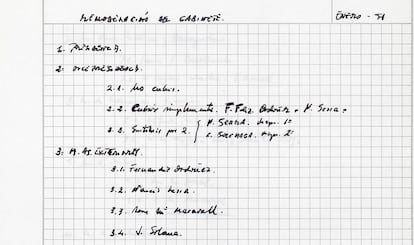 REMODELACIÓN DEL GABINETE.
ENERO - 91
1. PRESIDENCIA.
2. VICEPRESIDENCIA.
2.1. No cubrir.
2.2. Cubrir simplemente. F. Fdez Ordóñez o N. Serra.
2.3. Sustituir por 2. { N. SERRA. vicep. 1º
C. SOLCHAGA. vicep. 2º
3. M. AS. EXTERIORES.
3.1. Fernández Ordóñez
3.2. Narcís Serra.
3.3. José Mª Maravall.
3.4. J. Solana.